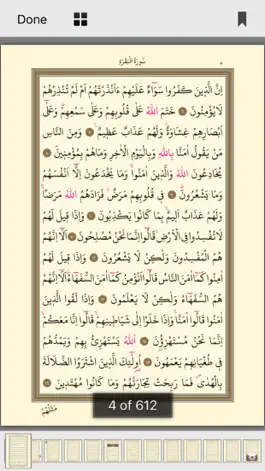 Done
سُورَةُ الْبَقَرَةِ
٢
اِنَّ الَّذٖينَ كَفَرُوا سَوَٓاءٌ عَلَيْهِمْ ءَاَنْذَرْتَهُمْ اَمْ لَمْ تُنْذِرْهُمْ
لَا يُؤْمِنُونَ خَتَمَ اللّٰهُ عَلٰى قُلُوبِهِمْ وَعَلٰى سَمْعِهِمْ وَعَلٰٓى
اَبْصَارِهِمْ غِشَاوَةٌ وَلَهُمْ عَذَابٌ عَظٖيمٌ وَمِنَ النَّاسِ
مَنْ يَقُولُ اٰمَنَّا بِاللّٰهِ وَبِالْيَوْمِ الْاٰخِرِ وَمَاهُمْ بِمُؤْمِنٖينَ
يُخَادِعُونَ اللّٰهَ وَالَّذٖينَ اٰمَنُوا وَمَا يَخْدَعُونَ اِلَّٓا اَنْفُسَهُمْ
وَمَا يَشْعُرُونَ فٖى قُلُوبِهِمْ مَرَضٌ فَزَادَهُمُ اللّٰهُ مَرَضًا
وَلَهُمْ عَذَابٌ اَلٖيمٌ بِمَا كَانُوا يَكْذِبُونَ وَاِذَا قٖيلَ لَهُمْ
لَا تُفْسِدُوا فِى الْاَرْضِ قَالُٓوا اِنَّمَا نَحْنُ مُصْلِحُونَ اَلَٓا اِنَّهُمْ
هُمُ الْمُفْسِدُونَ وَلٰكِنْ لَا يَشْعُرُونَ وَاِذَا قٖيلَ لَهُمْ
اٰمِنُوا كَمَٓا اٰمَنَ النَّاسُ قَالُٓوا اَنُؤْمِنُ كَمَٓا اٰمَنَ السُّفَهَٓاءُ اَلَٓا اِنَّهُمْ
هُمُ السُّفَهَٓاءُ وَلٰكِنْ لَا يَعْلَمُونَ وَاِذَا لَقُوا الَّذٖينَ
اٰمَنُوا قَالُٓوا اٰمَنَّا وَاِذَا خَلَوْا اِلٰى شَيَاطٖينِهِمْ قَالُٓوا اِنَّا مَعَكُمْ
اِنَّمَا نَحْنُ مُسْتَهْزِؤُنَ اَللّٰهُ يَسْتَهْزِئُ بِهِمْ وَيَمُدُّهُمْ
فٖى طُغْيَانِهِمْ يَعْمَهُونَ اُولٰٓئِكَ الَّذٖينَ اشْتَرَوُا الضَّلَالَةَ
بِالْهُدٰى فَمَا رَبِحَتْ تِجَارَتُهُمْ وَمَا كَانُوا مُهْتَدٖينَ
مَثَلُهُمْ
4 of 612